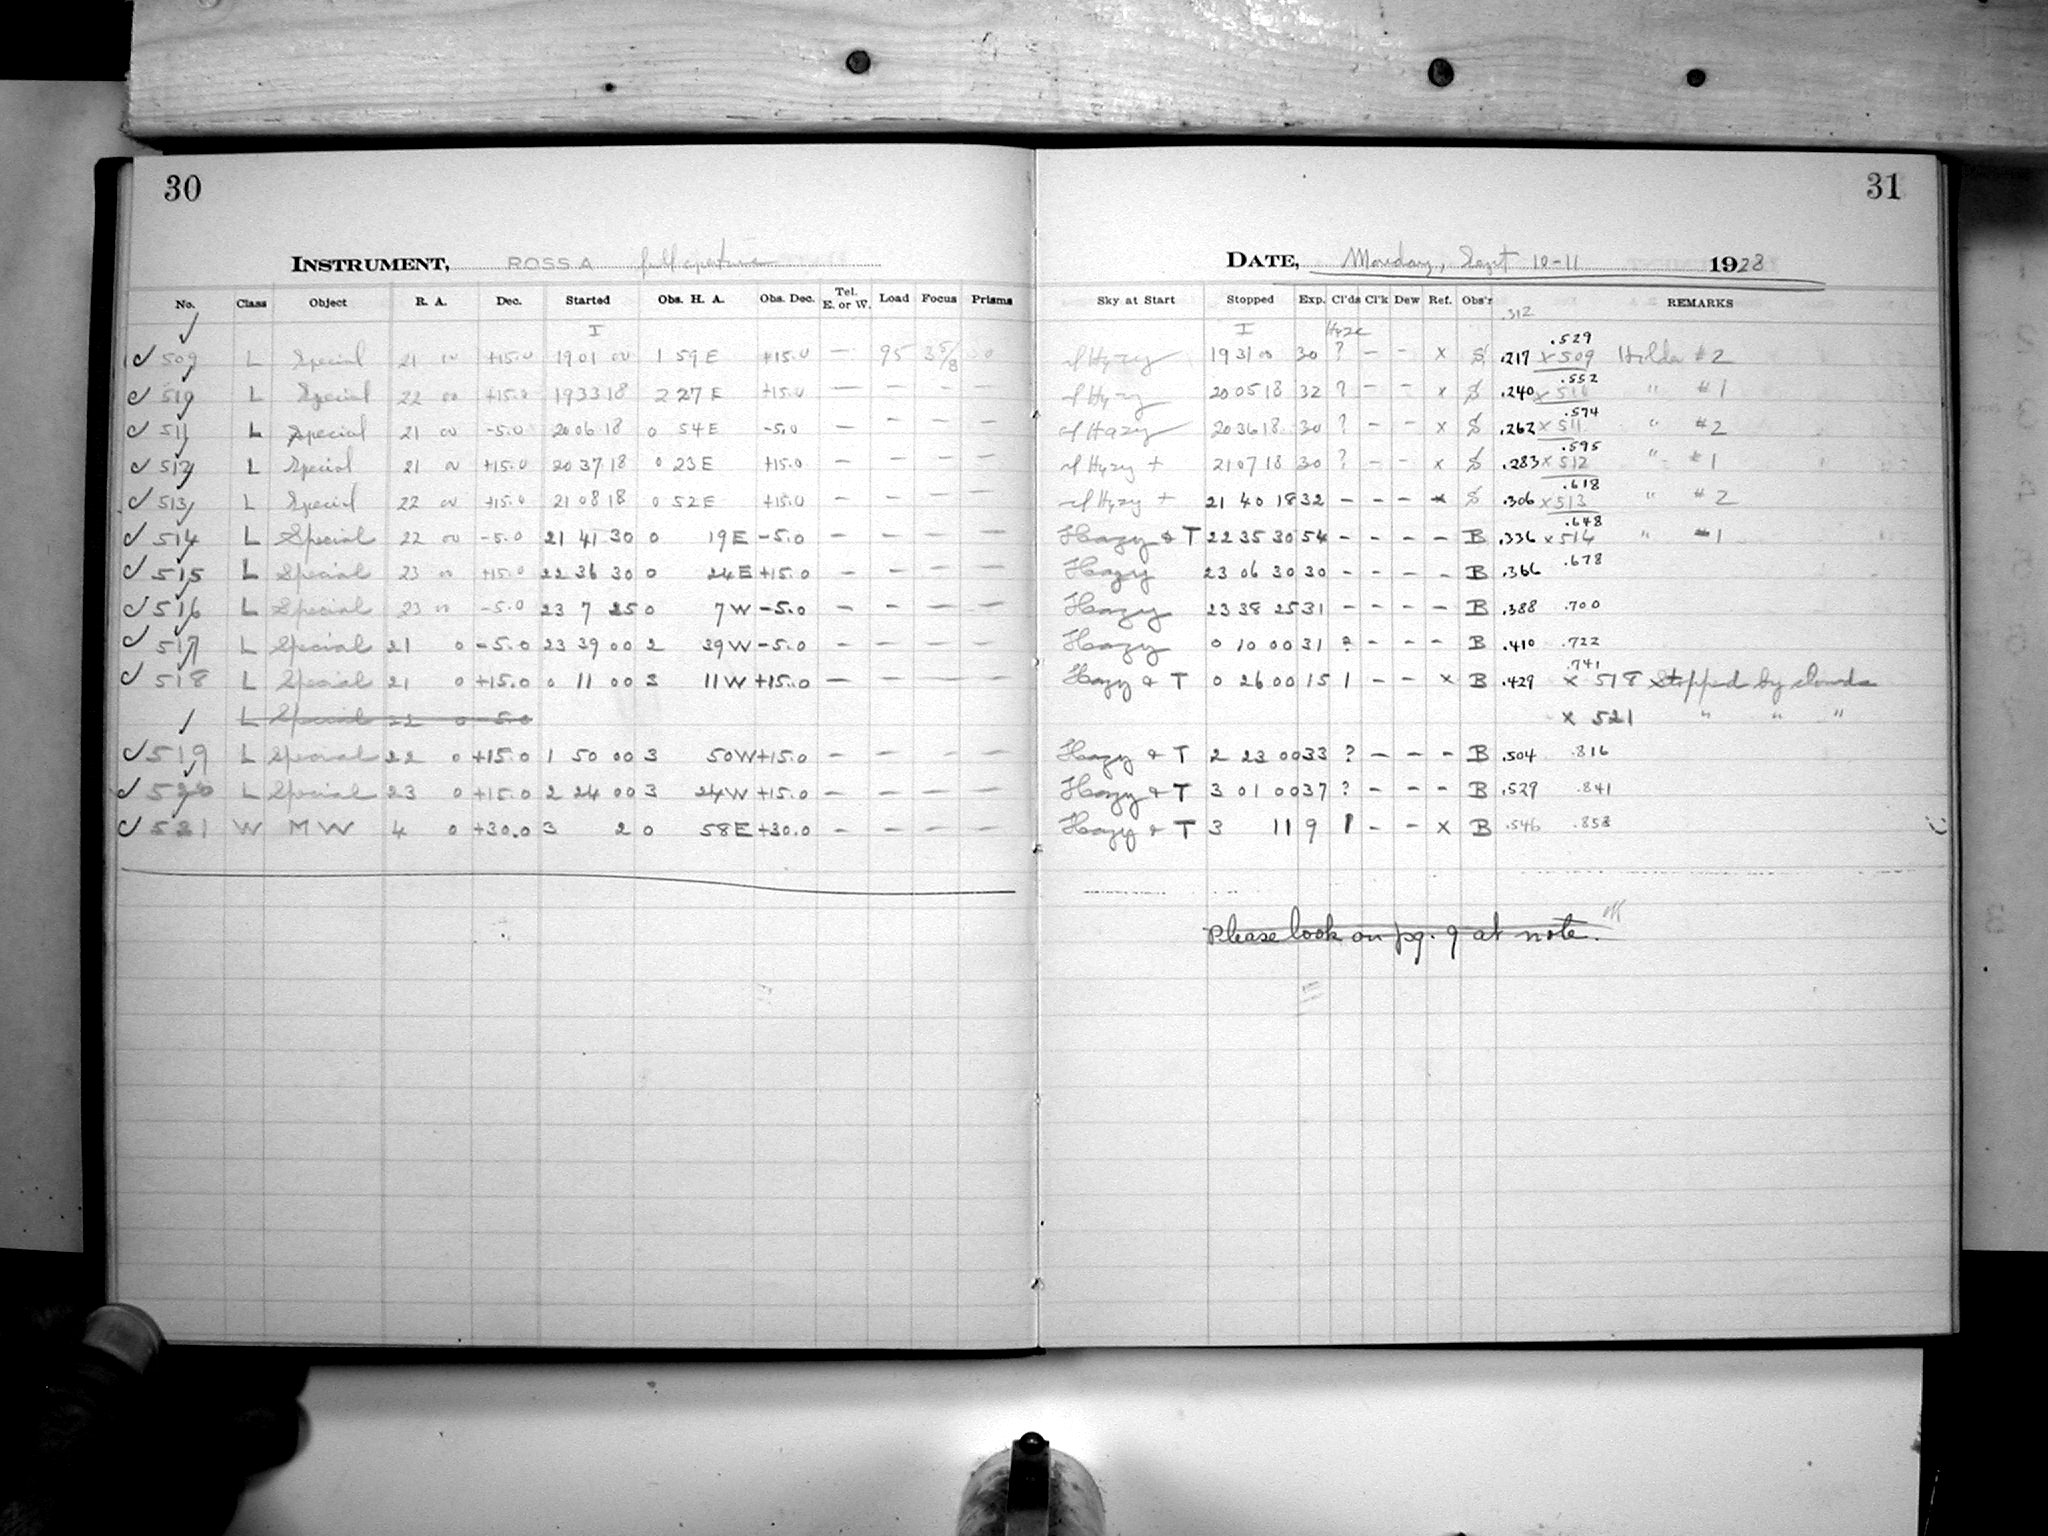 30
INSTRUMENT, ROSS A full aperture
No. Class Object R. A. Dec. Started Obs. H. A. Obs. Dec. Tel. E. or W. Load Focus Prisms
I
509 L Special 21 00 +15.0 19 01 00 1 59 E +15.0 — 95 3 5/8 0
510 L Special 22 00 +15.0 19 33 18 2 27 E +15.0 — — — —
511 L Special 21 00 -5.0 20 06 18 0 54 E -5.0 — — — —
512 L Special 21 00 +15.0 20 37 18 0 23 E +15.0 — — — —
513 L Special 22 00 +15.0 21 08 18 0 52 E +15.0 — — — —
514 L Special 22 00 -5.0 21 41 30 0 19 E -5.0 — — — —
515 L Special 23 00 +15.0 22 36 30 0 24 E +15.0 — — — —
516 L Special 23 00 -5.0 23 7 25 0 7 W -5.0 — — — —
517 L Special 21 0 -5.0 23 39 00 2 39 W -5.0 — — — —
518 L Special 21 0 +15.0 0 11 00 3 11 W +15.0 — — — —
L Special 22 0 -5.0
519 L Special 22 0 +15.0 1 50 00 3 50 W +15.0 — — — —
520 L Special 23 0 +15.0 2 24 00 3 24 W +15.0 — — — —
521 W MW 4 0 +30.0 3 2 0 58 E +30.0 — — — —
31
DATE, Monday, Sept 10-11 1928
Sky at Start Stopped Exp. Cl'ds Cl'k Dew Ref. Obs'r REMARKS
.312
I Haze
.529
Hazy 19 31 00 30 ? — — x S .217 x 509 Holder #2
.552
Hazy 20 05 18 32 ? — — x S .240 x 510 " #1
.574
Hazy 20 36 18 30 ? — — x S .262 x 511 " #2
.595
Hazy + 21 07 18 30 ? — — x S .283 x 512 " #1
.618
Hazy + 21 40 18 32 — — — x S .306 x 513 " #2
.648
Hazy & T 22 35 30 54 — — — — B .336 x 514 " #1
Hazy 23 06 30 30 — — — — B .366 .678
Hazy 23 38 25 31 — — — — B .388 .700
Hazy 0 10 00 31 ? — — — B .410 .722
.741
Hazy & T 0 26 00 15 1 — — x B .429 x 518 Stopped by clouds
x 521 " " "
Hazy & T 2 23 00 33 ? — — — B .504 .816
Hazy & T 3 01 00 37 ? — — — B .529 .841
Hazy & T 3 11 9 1 — — x B .546 .858
Please look on pg. 9 at note.